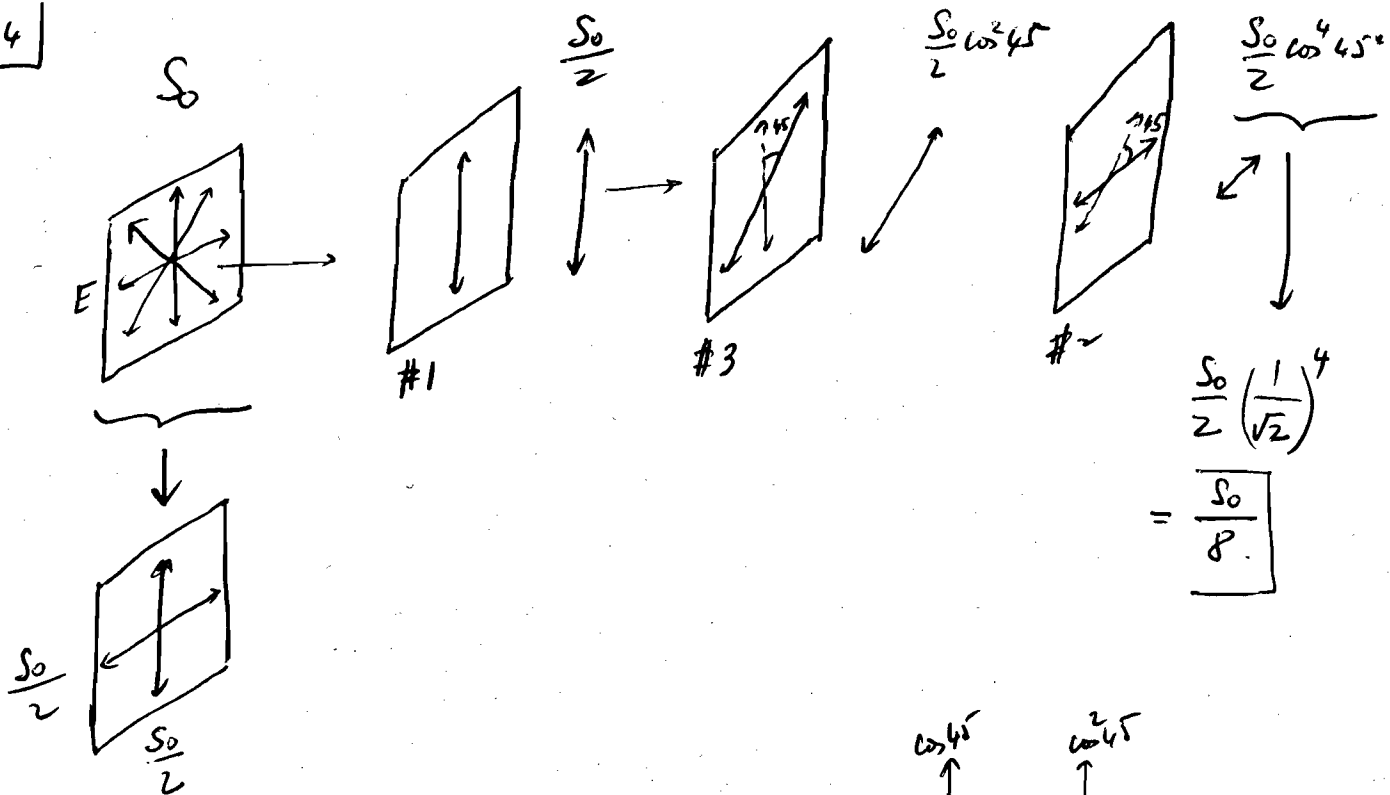 4
S₀
S₀/2
S₀/2 cos²45
S₀/2 cos⁴45°
45
45
E
#1
#3
#2
S₀/2 (1/√2)⁴
= S₀/8.
S₀/2
S₀/2
cos45
cos²45